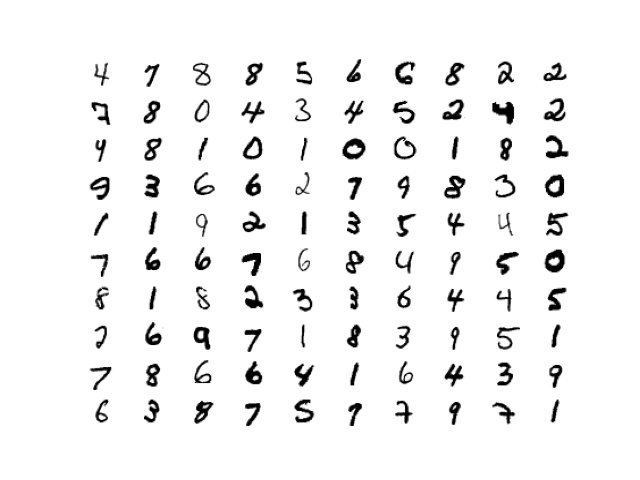 4 7 8 8 5 6 6 8 2 2
7 8 0 4 3 4 5 2 4 2
4 8 1 0 1 0 0 1 8 2
9 3 6 6 2 7 9 8 3 0
1 1 9 2 1 3 5 4 4 5
7 6 6 7 6 8 4 9 5 0
8 1 8 2 3 3 6 4 4 5
2 6 9 7 1 8 3 9 5 1
7 8 6 6 4 1 6 4 3 9
6 3 8 7 5 7 7 9 7 1